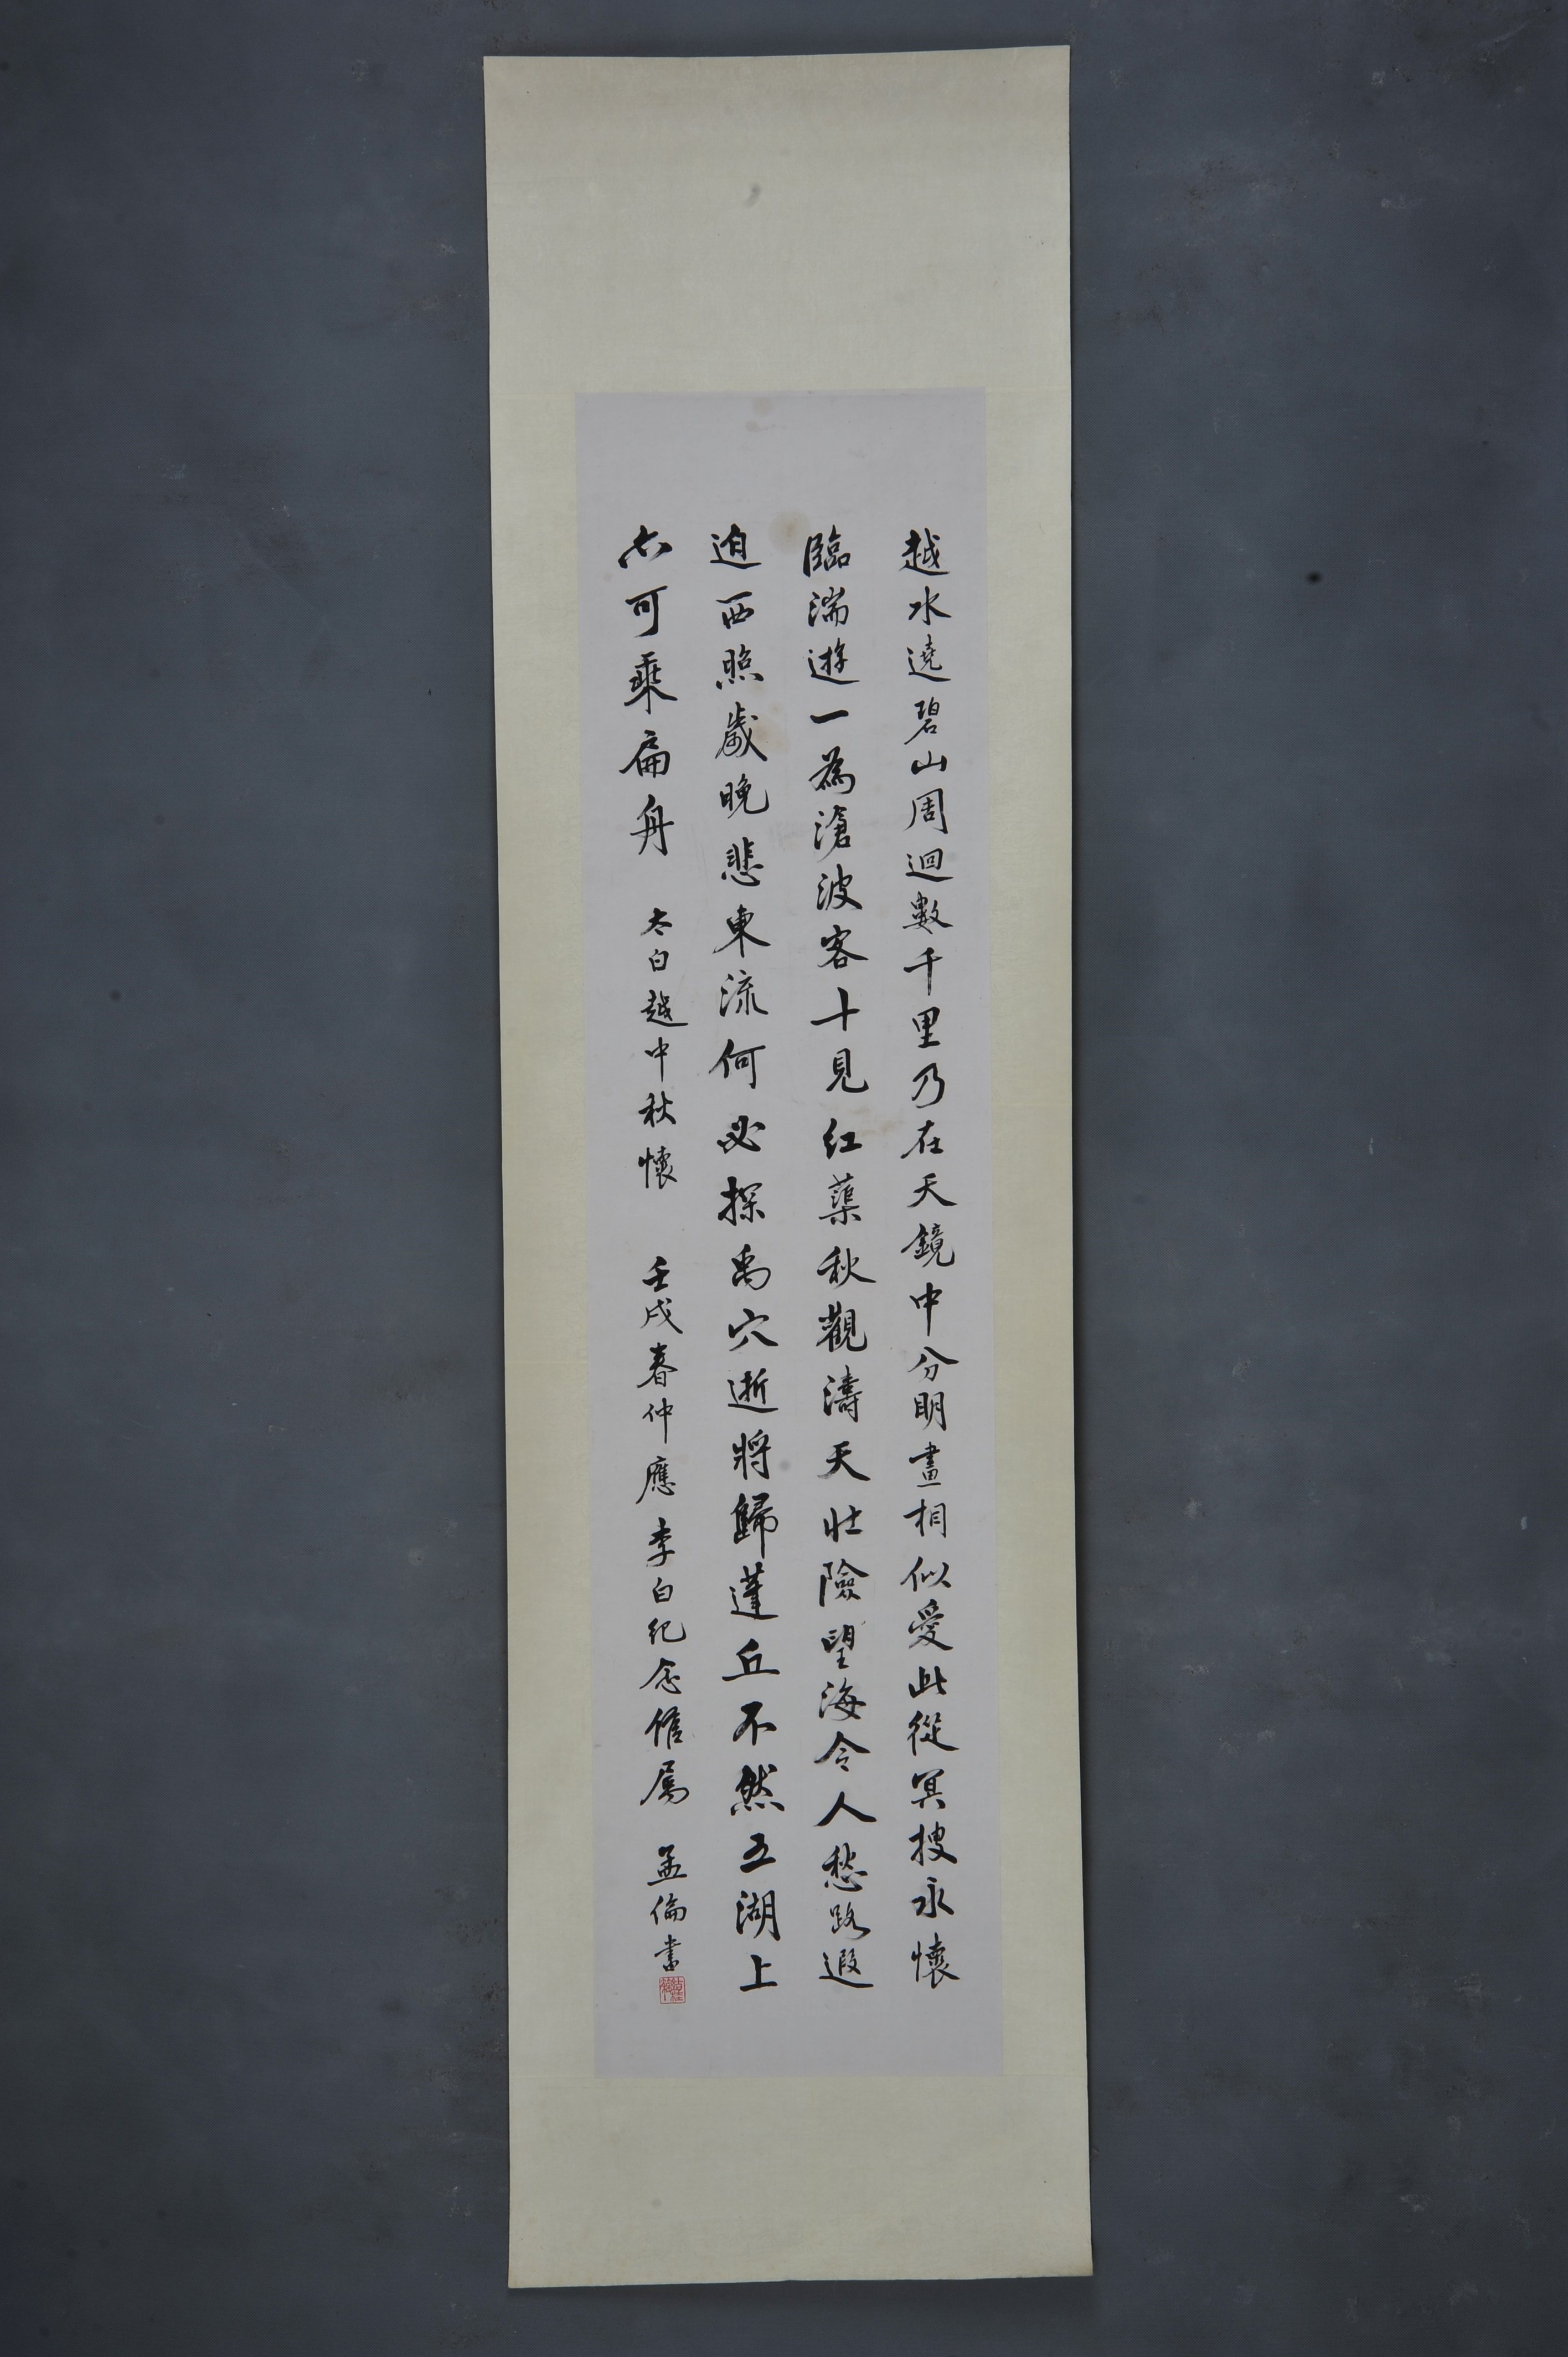 越水遶碧山周迴數千里乃在天鏡中分明畫相似愛此從冥搜永懷
臨湍遊一為滄波客十見紅蕖秋觀濤天壯險望海令人愁路遐
迫西照歲晚悲東流何必探禹穴逝將歸蓬丘不然五湖上
亦可乘扁舟 太白越中秋懷 壬戌春仲應 李白紀念館屬 孟倫書